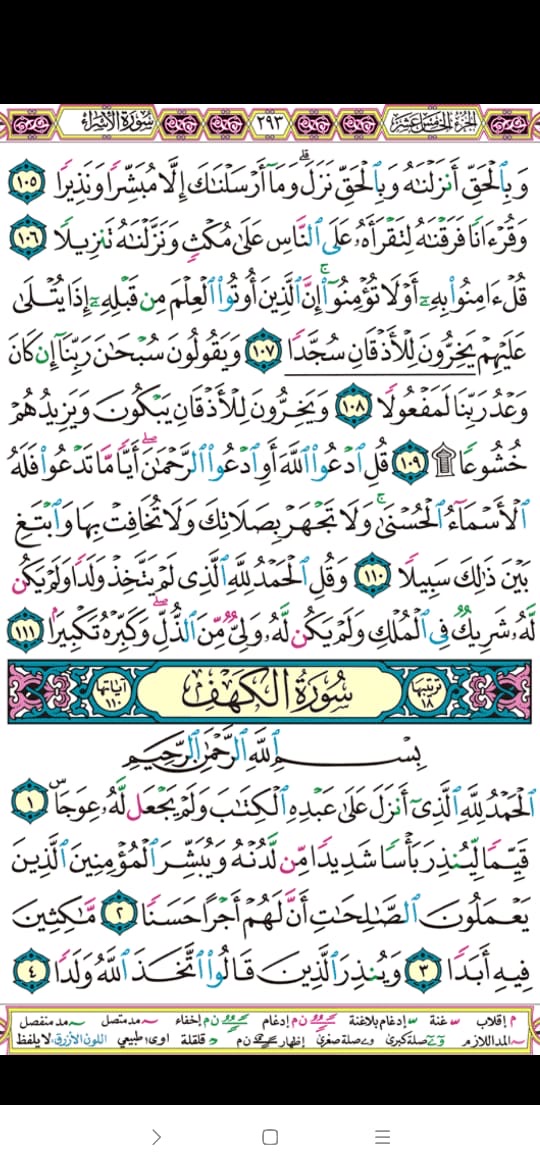 الجزء الخامس عشر ٢٩٣ سورة الإسراء
وَبِٱلْحَقِّ أَنزَلْنَٰهُ وَبِٱلْحَقِّ نَزَلَ ۗ وَمَآ أَرْسَلْنَٰكَ إِلَّا مُبَشِّرًا وَنَذِيرًا ١٠٥
وَقُرْءَانًا فَرَقْنَٰهُ لِتَقْرَأَهُۥ عَلَى ٱلنَّاسِ عَلَىٰ مُكْثٍ وَنَزَّلْنَٰهُ تَنزِيلًا ١٠٦
قُلْ ءَامِنُوا۟ بِهِۦٓ أَوْ لَا تُؤْمِنُوٓا۟ ۚ إِنَّ ٱلَّذِينَ أُوتُوا۟ ٱلْعِلْمَ مِن قَبْلِهِۦٓ إِذَا يُتْلَىٰ
عَلَيْهِمْ يَخِرُّونَ لِلْأَذْقَانِ سُجَّدًا ١٠٧ وَيَقُولُونَ سُبْحَٰنَ رَبِّنَآ إِن كَانَ
وَعْدُ رَبِّنَا لَمَفْعُولًا ١٠٨ وَيَخِرُّونَ لِلْأَذْقَانِ يَبْكُونَ وَيَزِيدُهُمْ
خُشُوعًا ۩ ١٠٩ قُلِ ٱدْعُوا۟ ٱللَّهَ أَوِ ٱدْعُوا۟ ٱلرَّحْمَٰنَ ۖ أَيًّا مَّا تَدْعُوا۟ فَلَهُ
ٱلْأَسْمَآءُ ٱلْحُسْنَىٰ ۚ وَلَا تَجْهَرْ بِصَلَاتِكَ وَلَا تُخَافِتْ بِهَا وَٱبْتَغِ
بَيْنَ ذَٰلِكَ سَبِيلًا ١١٠ وَقُلِ ٱلْحَمْدُ لِلَّهِ ٱلَّذِى لَمْ يَتَّخِذْ وَلَدًا وَلَمْ يَكُن
لَّهُۥ شَرِيكٌ فِى ٱلْمُلْكِ وَلَمْ يَكُن لَّهُۥ وَلِىٌّ مِّنَ ٱلذُّلِّ ۖ وَكَبِّرْهُ تَكْبِيرًۢا ١١١
ترتيبها ١٨ سورة الكهف آياتها ١١٠
بِسْمِ ٱللَّهِ ٱلرَّحْمَٰنِ ٱلرَّحِيمِ
ٱلْحَمْدُ لِلَّهِ ٱلَّذِىٓ أَنزَلَ عَلَىٰ عَبْدِهِ ٱلْكِتَٰبَ وَلَمْ يَجْعَل لَّهُۥ عِوَجَا ۜ ١
قَيِّمًا لِّيُنذِرَ بَأْسًا شَدِيدًا مِّن لَّدُنْهُ وَيُبَشِّرَ ٱلْمُؤْمِنِينَ ٱلَّذِينَ
يَعْمَلُونَ ٱلصَّٰلِحَٰتِ أَنَّ لَهُمْ أَجْرًا حَسَنًا ٢ مَّٰكِثِينَ
فِيهِ أَبَدًا ٣ وَيُنذِرَ ٱلَّذِينَ قَالُوا۟ ٱتَّخَذَ ٱللَّهُ وَلَدًا ٤
م إقلاب غنة إدغام بلاغنة ن م إدغام ن م إخفاء مد متصل مد منفصل
المد اللازم صلة كبرى صلة صغرى إظهار ن م قلقلة اوى طبيعي اللون الأزرق لا يلفظ